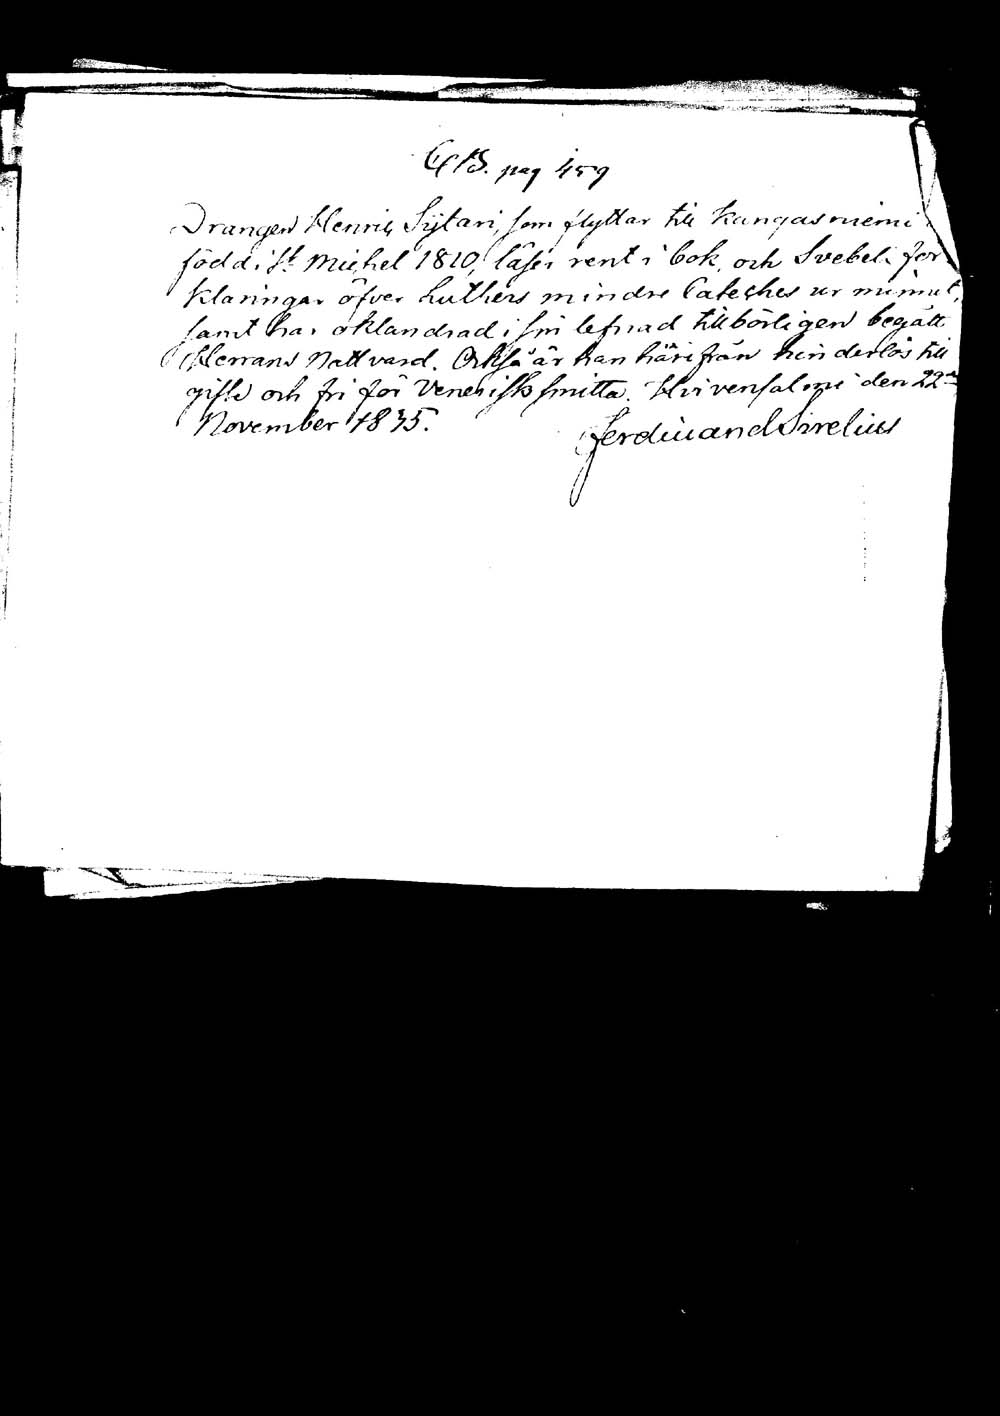 CB. pag 459
Drangen Henric Sijtari, som flyttar till Kangasniemi
född i St Michel 1810, läser rent i bok, och Svebeli för
klaringar öfver Luthers mindre Cateches ur minnet,
samt har oklandrad i sin lefnad tillbörligen begått
Herrans Nattvard. Också är han härifrån hinderlös till
gifte och fri för Venerisk smitta. Hirvensalmi den 22
November 1835.
Ferdinand Sirelius